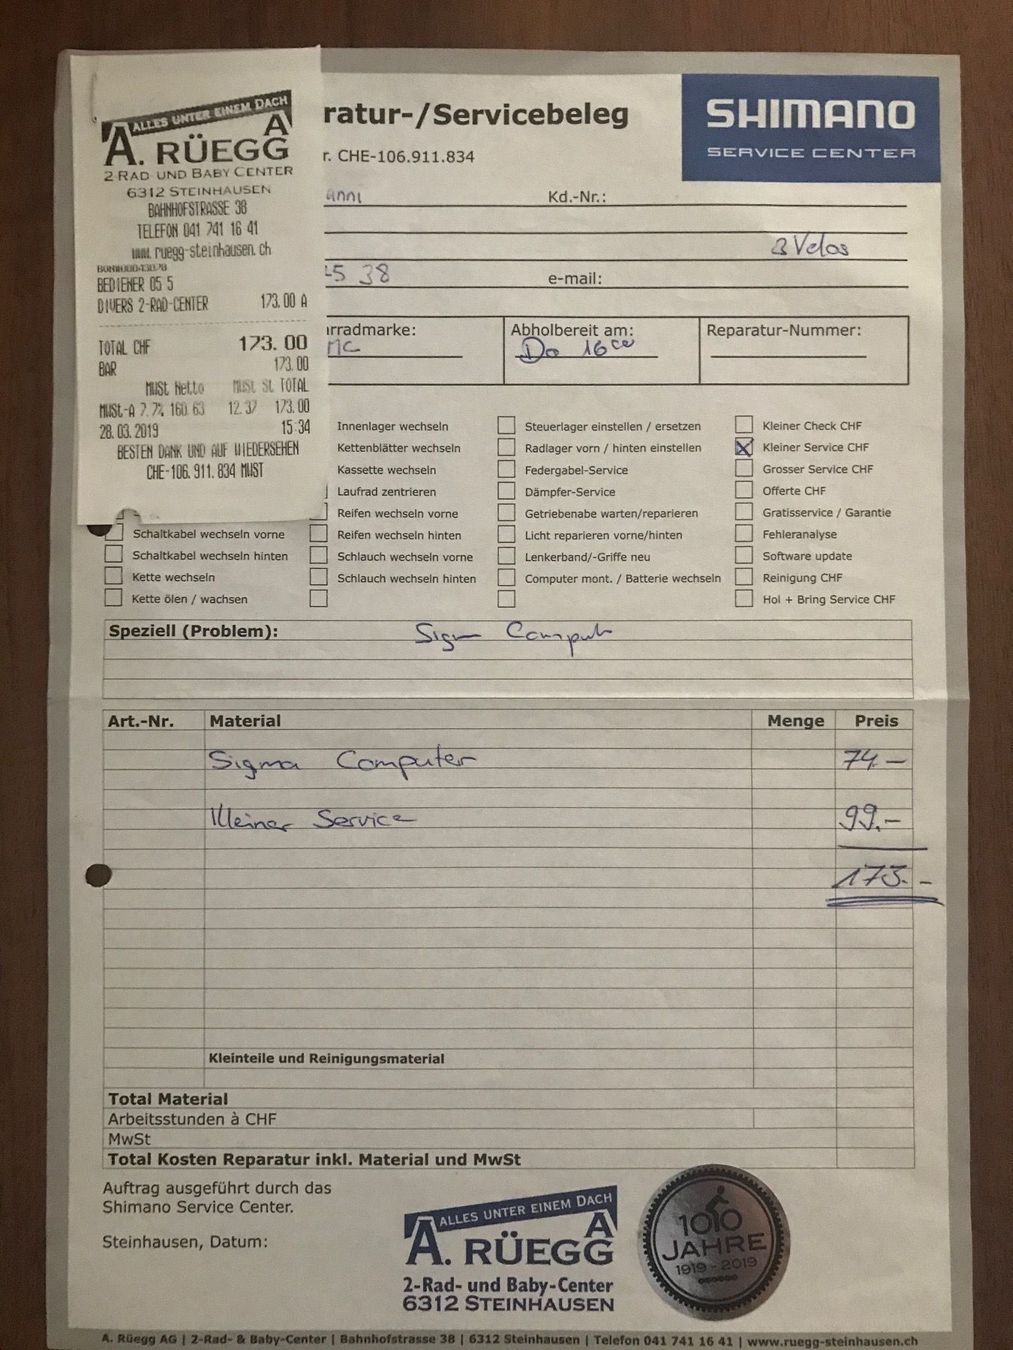 ALLES UNTER EINEM DACH
A. RÜEGG A
2-RAD UND BABY CENTER
6312 STEINHAUSEN
BAHNHOFSTRASSE 38
TELEFON 041 741 16 41
www.ruegg-steinhausen.ch
BEDIENER 05 5
DIVERS 2-RAD-CENTER 173.00 A
TOTAL CHF 173.00
BAR 173.00
MWSt Netto MWSt St TOTAL
MWSt-A 7.7% 160.63 12.37 173.00
28.03.2019 15:34
BESTEN DANK UND AUF WIEDERSEHEN
CHE-106.911.834 MWST
ratur-/Servicebeleg
r. CHE-106.911.834
SHIMANO
SERVICE CENTER
Kd.-Nr.:
Velos
38 e-mail:
rradmarke: Abholbereit am: Reparatur-Nummer:
MC Do 16
Innenlager wechseln Steuerlager einstellen / ersetzen Kleiner Check CHF
Kettenblätter wechseln Radlager vorn / hinten einstellen Kleiner Service CHF
Kassette wechseln Federgabel-Service Grosser Service CHF
Laufrad zentrieren Dämpfer-Service Offerte CHF
Reifen wechseln vorne Getriebenabe warten/reparieren Gratisservice / Garantie
Schaltkabel wechseln vorne Reifen wechseln hinten Licht reparieren vorne/hinten Fehleranalyse
Schaltkabel wechseln hinten Schlauch wechseln vorne Lenkerband/-Griffe neu Software update
Kette wechseln Schlauch wechseln hinten Computer mont. / Batterie wechseln Reinigung CHF
Kette ölen / wachsen Hol + Bring Service CHF
Speziell (Problem): Sigma Computer
Art.-Nr. Material Menge Preis
Sigma Computer 74.–
Kleiner Service 99.–
173.–
Kleinteile und Reinigungsmaterial
Total Material
Arbeitsstunden à CHF
MwSt
Total Kosten Reparatur inkl. Material und MwSt
Auftrag ausgeführt durch das
Shimano Service Center.
Steinhausen, Datum:
ALLES UNTER EINEM DACH
A. RÜEGG A
2-Rad- und Baby-Center
6312 STEINHAUSEN
100
JAHRE
1919 - 2019
A. Rüegg AG | 2-Rad- & Baby-Center | Bahnhofstrasse 38 | 6312 Steinhausen | Telefon 041 741 16 41 | www.ruegg-steinhausen.ch